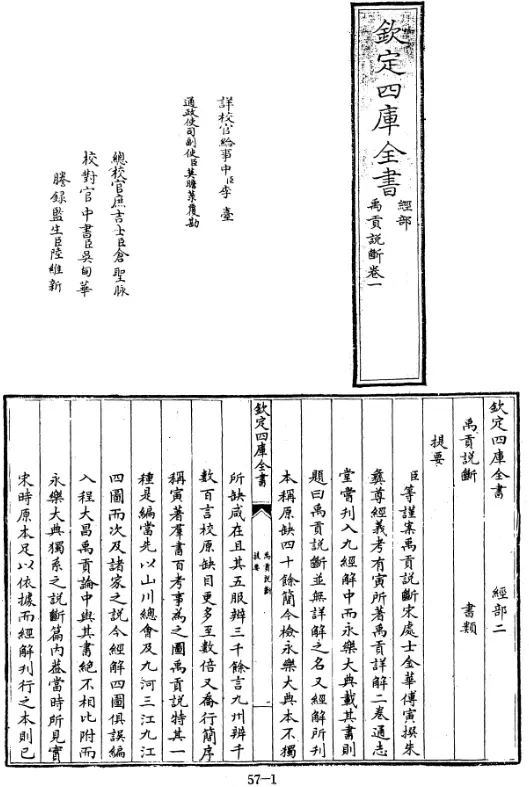 欽定四庫全書
經部
禹貢說斷卷一
詳校官給事中臣李臺
通政使司副使臣莫瞻菉覆勘
總校官庶吉士臣倉聖脉
校對官中書臣吳甸華
謄錄監生臣陸維新
欽定四庫全書 經部二
禹貢說斷 書類
提要
臣等謹案禹貢說斷宋處士金華傅寅撰朱
彝尊經義考有寅所著禹貢詳解二卷通志
堂嘗刊入九經解中而永樂大典載其書則
題曰禹貢說斷並無詳解之名又經解所刊
本稱原缺四十餘簡今檢永樂大典本不獨
欽定四庫全書
禹貢說斷
提要
所缺咸在且其五服辨三千餘言九州辨千
數百言校原缺目更多至數倍又喬行簡序
稱寅著羣書百考事為之圖禹貢說特其一
種是編當先以山川總會及九河三江九江
四圖而次及諸家之說今經解四圖俱誤編
入程大昌禹貢論中與其書絕不相比附而
永樂大典獨系之說斷篇內葢當時所見實
宋時原本足以依據而經解刊行之本則已
57-1